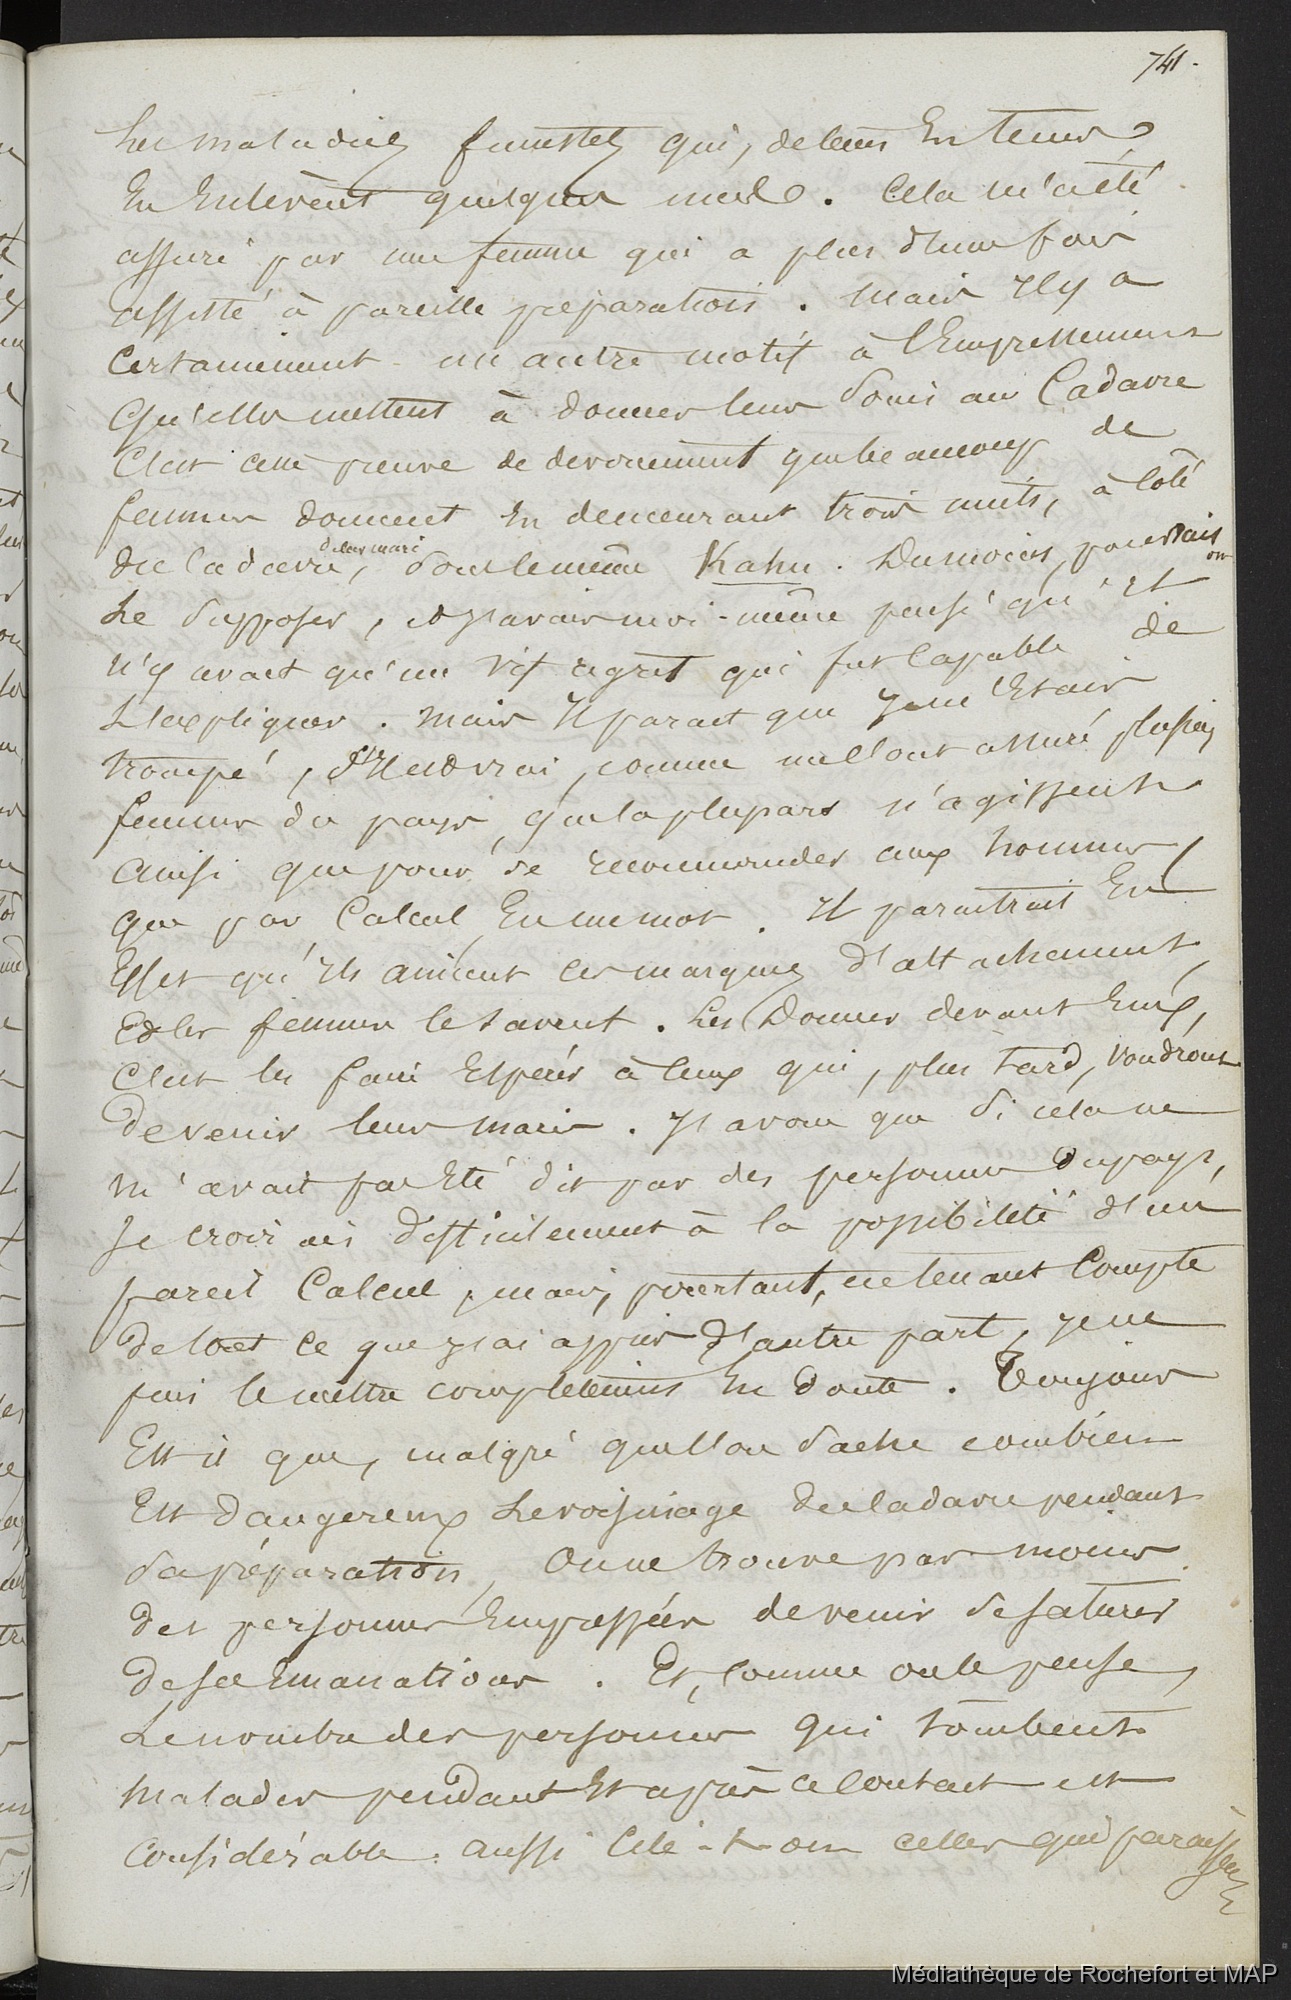 741.
les maladies funestes qui, de tems en tems
en enlèvent quelques unes. Cela m'a été
assuré par une femme qui a plus d'une fois
assisté à pareille préparation. Mais il y a
certainement un autre motif à l'empressement
qu'elles mettent à donner leurs soins au cadavre
c'est cette preuve de dévouement que beaucoup de
femmes donnent en demeurant trois nuits, à côté
du cadavre de leur mari, sous le même Kahu. Du moins, pourrait on
le supposer, et j'avais moi-même pensé qu'il
n'y avait qu'un vif regret qui fut capable de
l'expliquer. Mais il parait que je m'étais
trompé, s'il est vrai, comme me l'ont assuré plusieurs
femmes du pays, que la plupart n'agissent
ainsi que pour se recommander aux hommes,
que par calcul en un mot. Il paraitrait en
effet qu'ils aiment ces marques d'attachement,
et les femmes le savent. Les donner devant eux,
c'est les faire espérer à ceux qui, plus tard, voudront
devenir leurs maris. J'avoue que si cela ne
m'avait pas été dit par des personnes du pays,
je croirais difficilement à la possibilité d'un
pareil calcul, mais, pourtant, en tenant compte
de tout ce que j'ai appris d'autre part, je ne
puis le mettre complètement en doute. Toujours
est il que, malgré que l'on sache combien
est dangereux le voisinage du cadavre pendant
sa préparation, on ne trouve pas moins
des personnes empressées de venir se saturer
de ses émanations. Et, comme on le pense,
le nombre des personnes qui tombent
malades pendant et après ce contact est
considérable. aussi cite-t-on celles qui paraissent